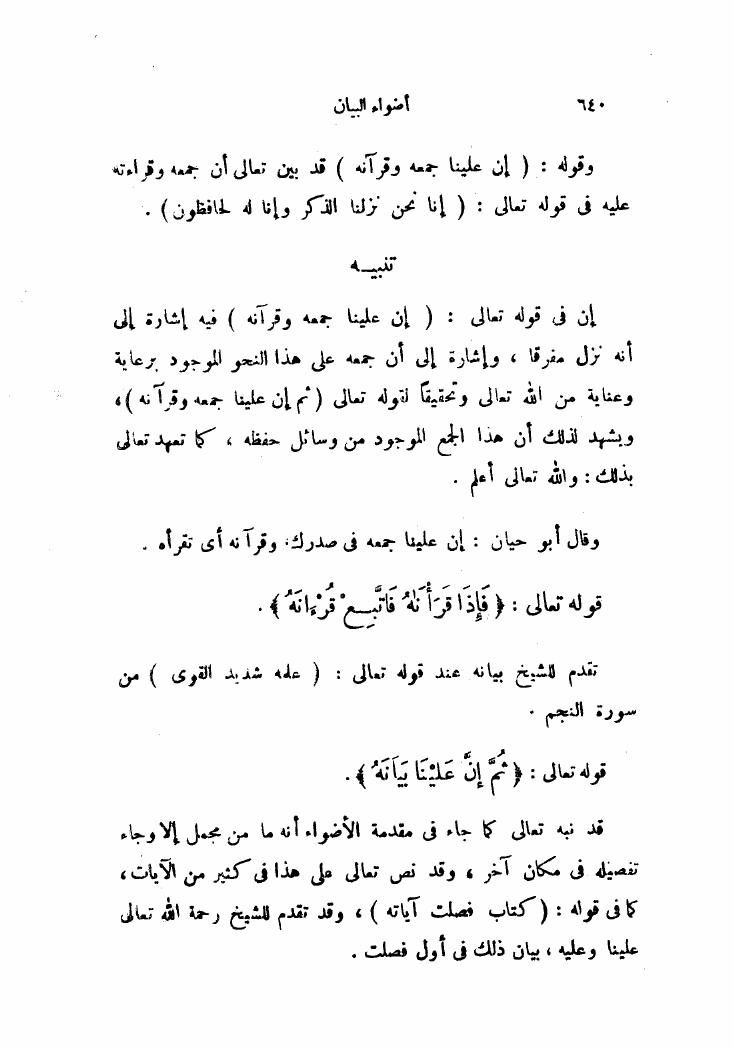 ٦٤٠ أضواء البيان
وقوله : ( إن علينا جمعه وقرآنه ) قد بين تعالى أن جمعه وقراءته
عليه فى قوله تعالى : ( إنا نحن نزلنا الذكر وإنا له لحافظون ) .
تنبيـه
إن فى قوله تعالى : ( إن علينا جمعه وقرآنه ) فيه إشارة إلى
أنه نزل مفرقا ، وإشارة إلى أن جمعه على هذا النحو الموجود برعاية
وعناية من الله تعالى وتحقيقاً لقوله تعالى (ثم إن علينا جمعه وقرآنه) ،
ويشهد لذلك أن هذا الجمع الموجود من وسائل حفظه ، كما تعهد تعالى
بذلك : والله تعالى أعلم .
وقال أبو حيان : إن علينا جمعه فى صدرك وقرآنه أى تقرأه .
قوله تعالى : ﴿ فَإِذَا قَرَأْنَٰهُ فَاتَّبِعْ قُرْءَانَهُ ﴾ .
تقدم للشيخ بيانه عند قوله تعالى : ( علمه شديد القوى ) من
سورة النجم .
قوله تعالى : ﴿ ثُمَّ إِنَّ عَلَيْنَا بَيَانَهُ ﴾ .
قد نبه تعالى كما جاء فى مقدمة الأضواء أنه ما من مجمل إلا وجاء
تفصيله فى مكان آخر ، وقد نص تعالى على هذا فى كثير من الآيات ،
كما فى قوله : ( كتاب فصلت آياته ) ، وقد تقدم للشيخ رحمة الله تعالى
علينا وعليه ، بيان ذلك فى أول فصلت .